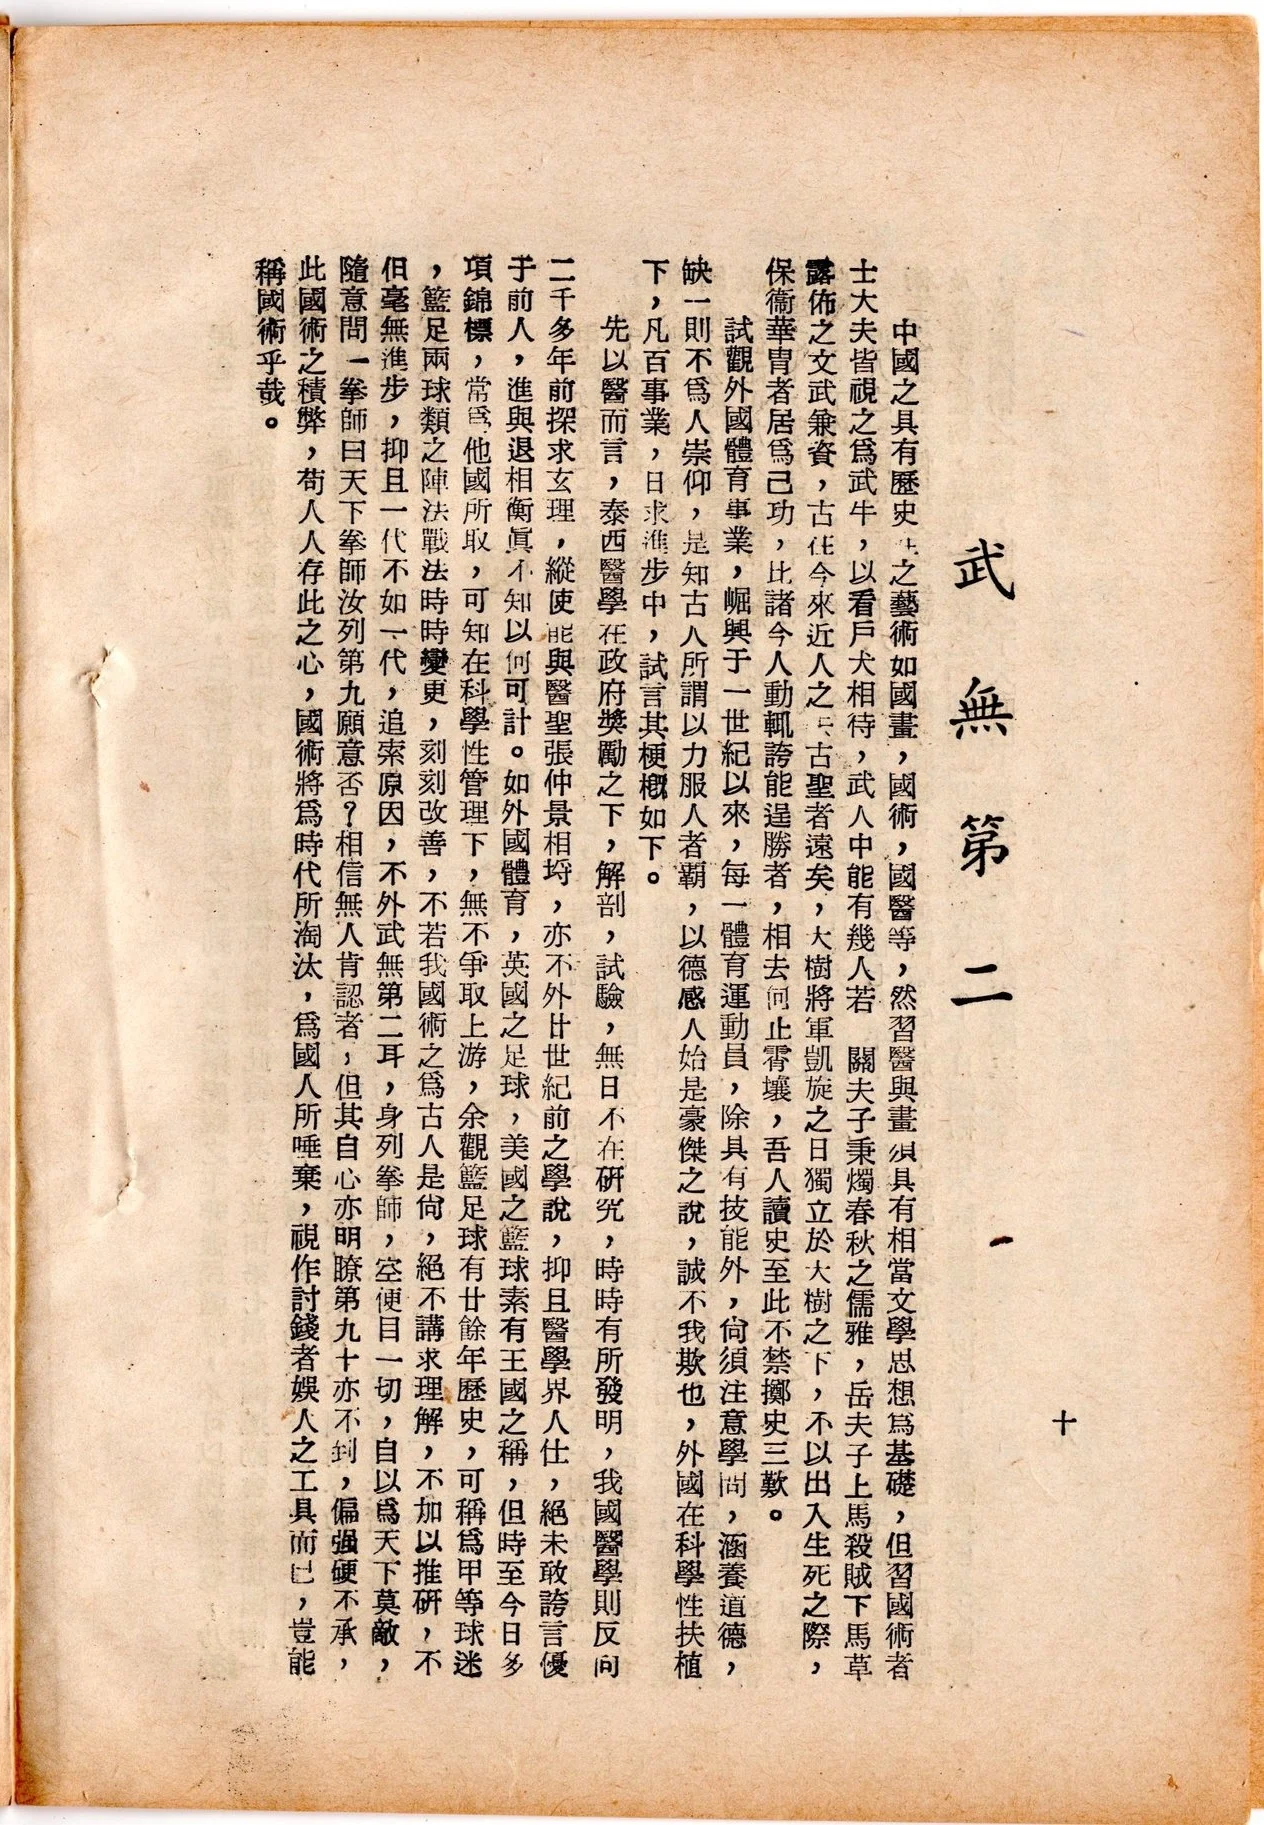 十
武無第二
中國之具有歷史性之藝術如國畫，國術，國醫等，然習醫與畫須具有相當文學思想爲基礎，但習國術者
士大夫皆視之爲武牛，以看戶犬相待，武人中能有幾人若　關夫子秉燭春秋之儒雅，岳夫子上馬殺賊下馬草
露佈之文武兼資，古往今來近人之　古聖者遠矣，大樹將軍凱旋之日獨立於大樹之下，不以出入生死之際，
保衞華胄者居爲己功，比諸今人動輒誇能逞勝者，相去何止霄壤，吾人讀史至此不禁擲史三歎。
試觀外國體育事業，崛興于一世紀以來，每一體育運動員，除具有技能外，尙須注意學問，涵養道德，
缺一則不爲人崇仰，是知古人所謂以力服人者霸，以德感人始是豪傑之說，誠不我欺也，外國在科學性扶植
下，凡百事業，日求進步中，試言其梗槪如下。
先以醫而言，泰西醫學在政府獎勵之下，解剖，試驗，無日不在硏究，時時有所發明，我國醫學則反向
二千多年前探求玄理，縱使能與醫聖張仲景相埒，亦不外廿世紀前之學說，抑且醫學界人仕，絕未敢誇言優
于前人，進與退相衡眞不知以何可計。如外國體育，英國之足球，美國之籃球素有王國之稱，但時至今日多
項錦標，常爲他國所取，可知在科學性管理下，無不爭取上游，余觀籃足球有廿餘年歷史，可稱爲甲等球迷
，籃足兩球類之陣法戰法時時變更，刻刻改善，不若我國術之爲古人是尙，絕不講求理解，不加以推硏，不
但毫無進步，抑且一代不如一代，追索原因，不外武無第二耳，身列拳師，空便目一切，自以爲天下莫敵，
隨意問一拳師曰天下拳師汝列第九願意否？相信無人肯認者，但其自心亦明瞭第九十亦不到，偏强硬不承，
此國術之積弊，苟人人存此之心，國術將爲時代所淘汰，爲國人所唾棄，視作討錢者娛人之工具而已，豈能
稱國術乎哉。